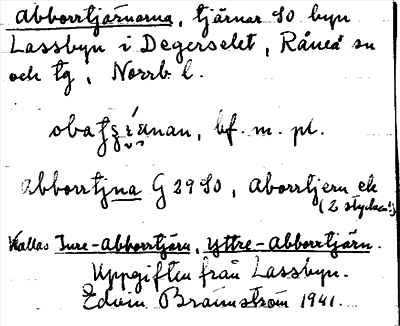 Abborrtjärnarna, tjärnar SO byn
Lassbyn i Degerselet, Råneå sn
och tg, Norrb. l.
bf. m. pl.
Abborrtjna G 29 SO, Aborrtjern ek
(2 stycken!)
Kallas Inre-Abborrtjärn, Yttre-Abborrtjärn.
Uppgiften från Lassbyn.
Edvin Brännström 1941.